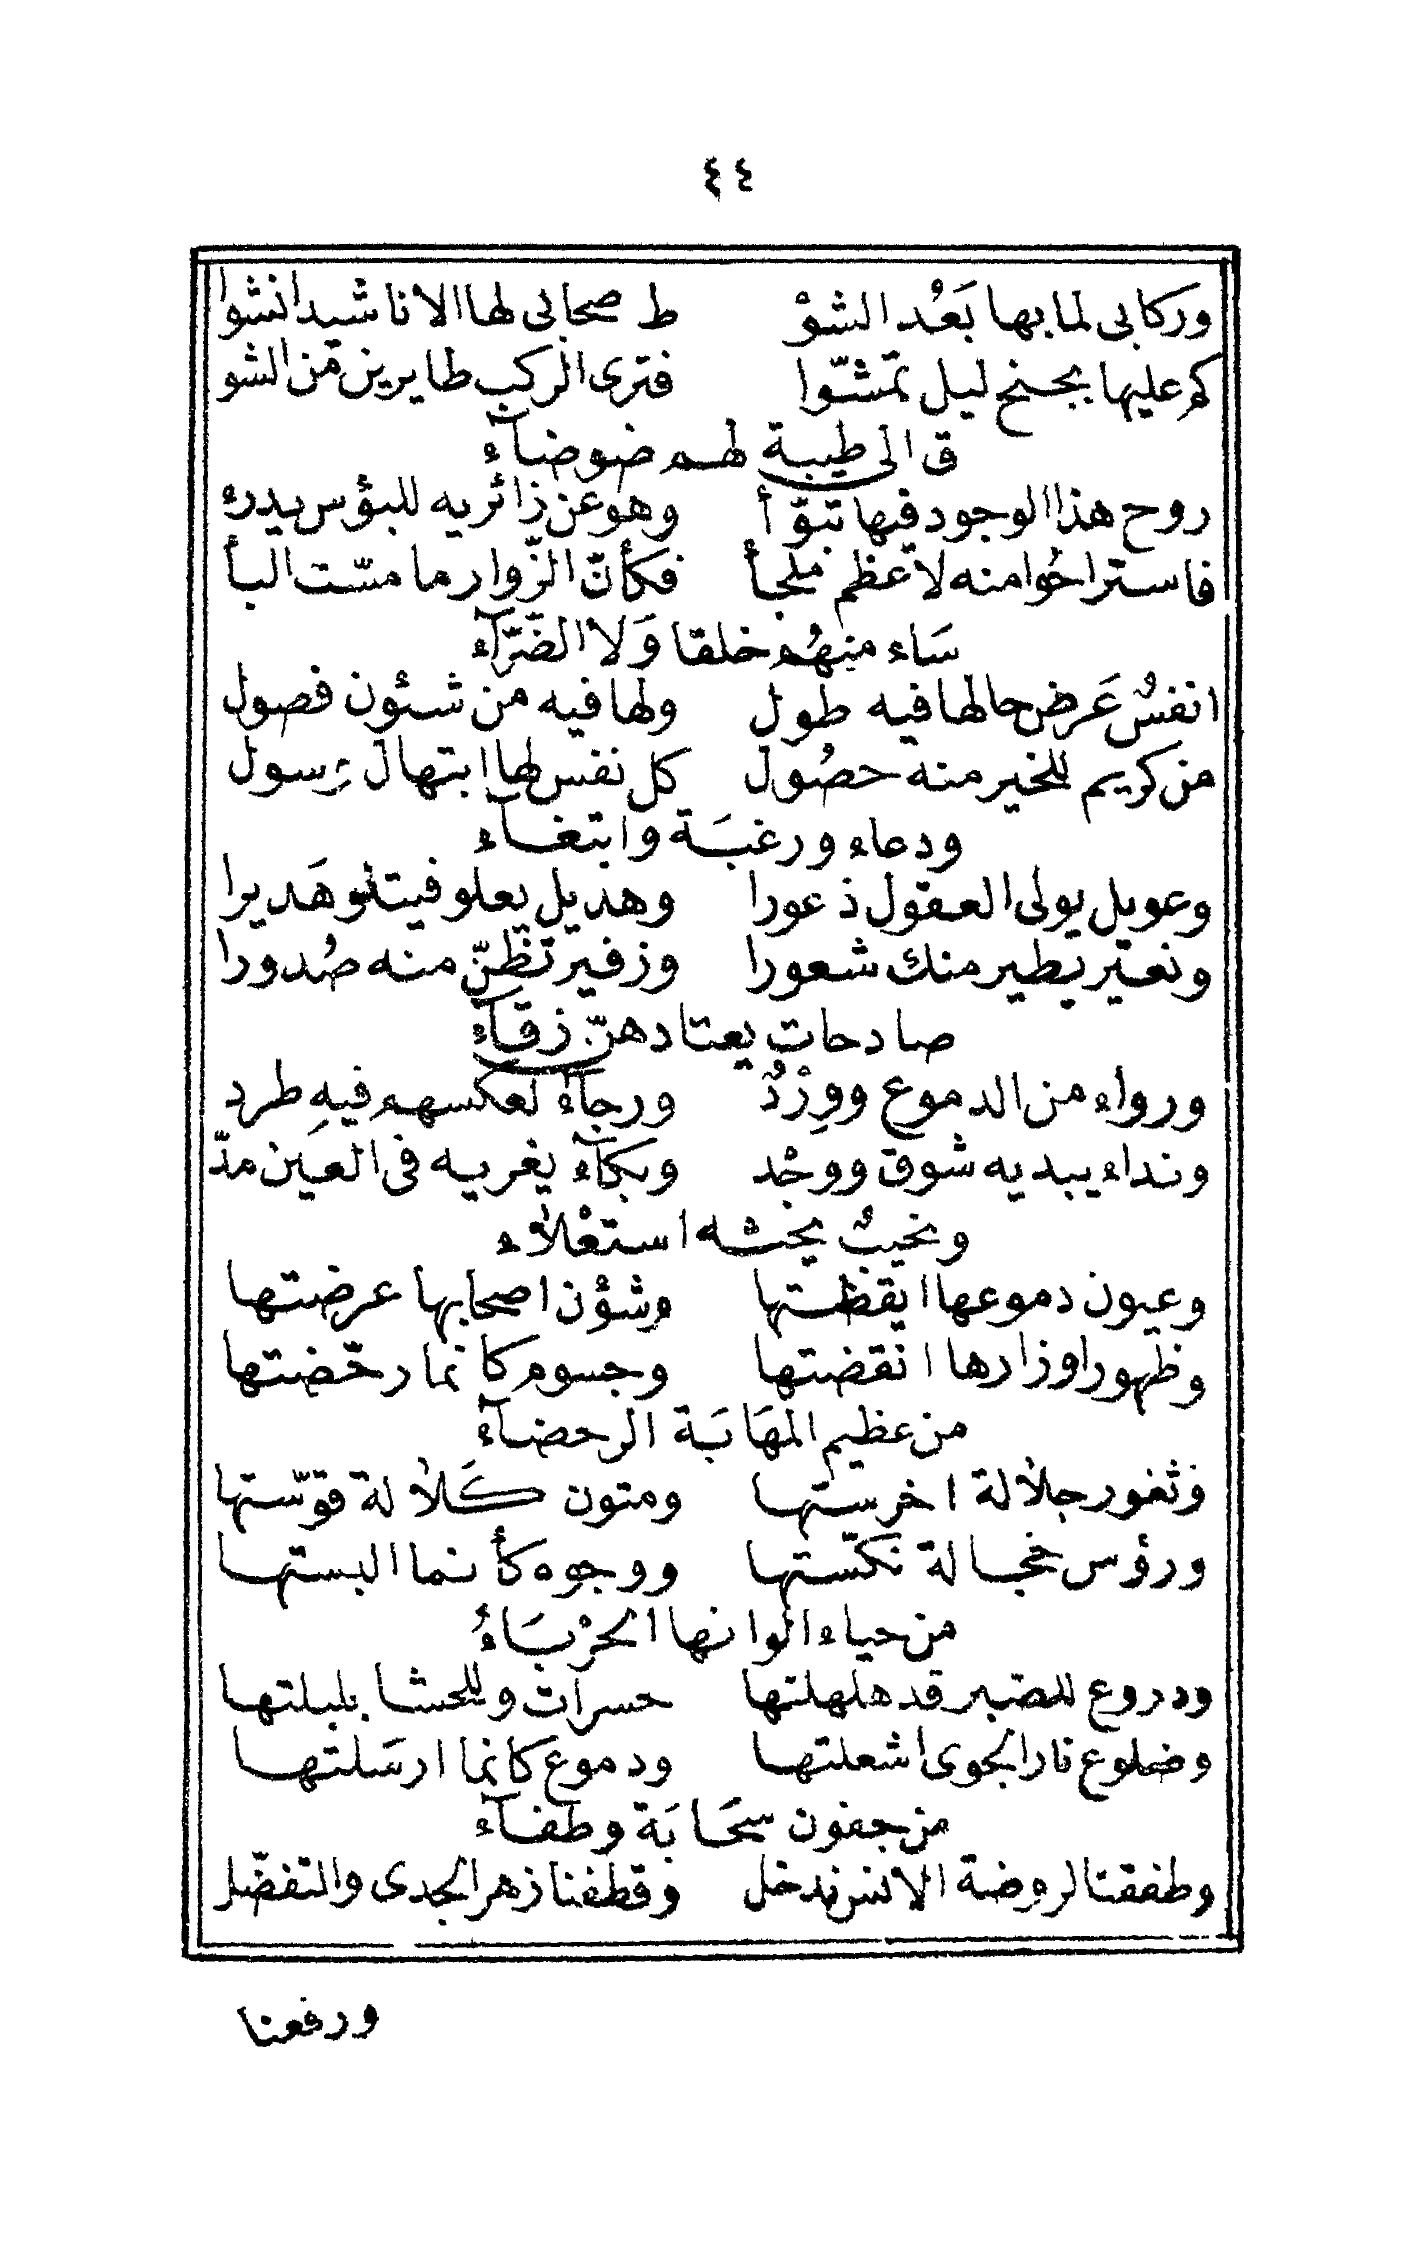 ٤٤
وركابى لما بها بَعْد الشوْ ط صحابى لها الاناشيد انشوا
كم عليها بجنح ليل تمشّوا فترى الركب طايرين من الشو
ق الى طيبة لهم ضوضآء
روح هذا الوجود فيها تبوّأ وهو عن زائريه للبؤس يدرء
فاستراحُوا منه لأعظم ملجأ فكأنّ الزّوار ما مسّت البأ
سَاء منهُم خلقا وَلا الضّرّآء
انفسٌ عَرض حالها فيه طول ولها فيه من شئون فصول
من كريم للخير منه حصُول كل نفس لها ابتهال وسول
ودعاء ورغبَة وابتغآء
وعويل يولى العقول ذعورا وهديل يعلو فيتلو هَديرا
ونعيّر يطير منك شعورا وزفير تظنّ منه صُدورا
صادحات يعتادهنّ زقآء
ورواء من الدموع ووِرْدٌ ورجآءٌ لعكسهم فيهِ طرد
ونداء يبديه شوق ووجْد وبكآء يغريه فى العين مدّ
ونحيبٌ يحثه استعْلاء
وعيون دموعها ايقظتها وشؤن اصحابها عرضتها
وظهور اوزارها انقضتها وجسوم كانما رحّضتها
من عظيم المهَابَة الرحضآء
وثغور جلالة اخرستها ومتون كَلالة قوّستها
ورؤس خجالة نكّستها ووجوه كأنما البستها
من حياء الوانها الحرْبَاءُ
ودروع للصبر قد هلهلتها حسرات وللحشا بلبلتها
وضلوع نار الجوى اشعلتها ودموع كانما ارسَلتها
من جفون سحَابَة وطفآء
وطفقنا لروضة الانس ندخل وقطفنا زهر الجدى والتفضّل
ورفعنا